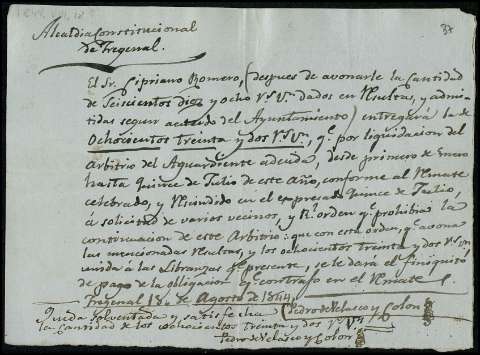 37
Alcaldia Constitucional
de Fregenal.
El Sr. Cipriano Romero, (despues de avonarle la Cantidad
de Seiscientos diez y ocho Vs. Vn. dados en Resultas, y admi-
tidas segun acuerdo del Ayuntamiento) entregará la de
Ochocientos treinta y dos Vs. Vn., qe. por liquidacion del
Arbitrio del Aguardiente adeuda, desde primero de Enero
hasta quince de Julio de este Año, conforme al Remate
celebrado, y Rescindido en el expresado quince de Julio,
á solicitud de varios vecinos, y Rl. orden qe. prohibia la
continuacion de este Arbitrio: que con esta orden, qe. avona
las mencionadas Resultas, y los ochocientos treinta y dos Vs.
unida á las Libranzas qe. presente, se le dará el finiquito
de pago de la obligacion qe. contrajo en el Remate.
Fregenal 18 de Agosto de 1844.
Pedro de Velasco y Colon
Queda solventada y satisfecha
la Cantidad de los ochocientos treinta y dos Vs. Vn.
Pedro de Velasco y Colon